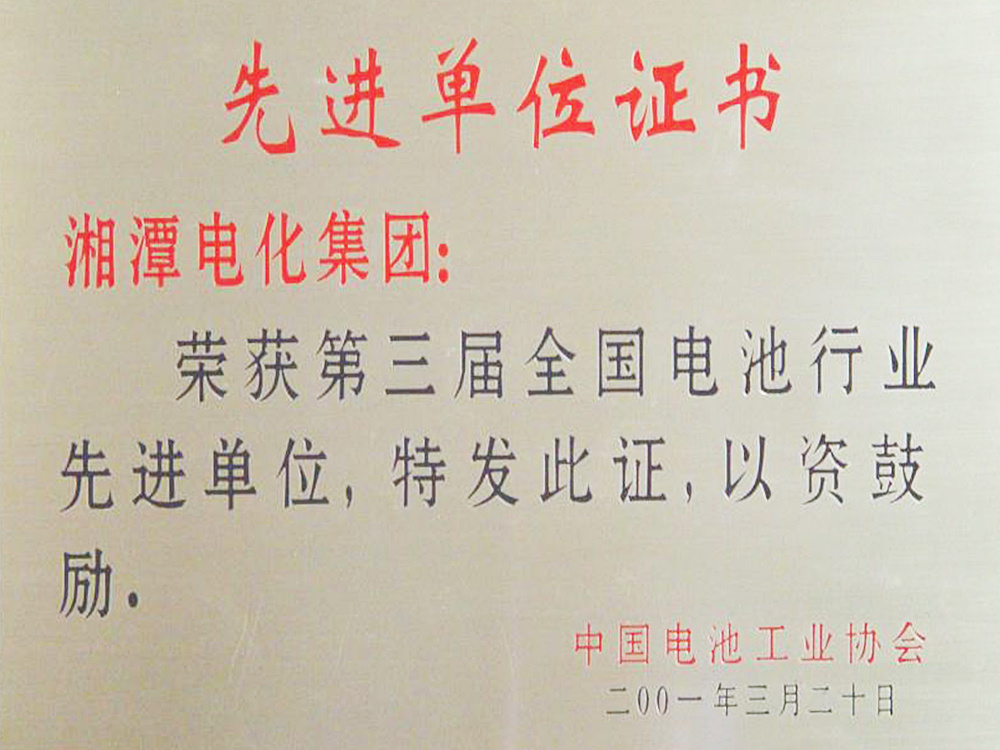 先进单位证书
湘潭电化集团:
荣获第三届全国电池行业
先进单位,特发此证,以资鼓
励.
中国电池工业协会
二00一年三月二十日